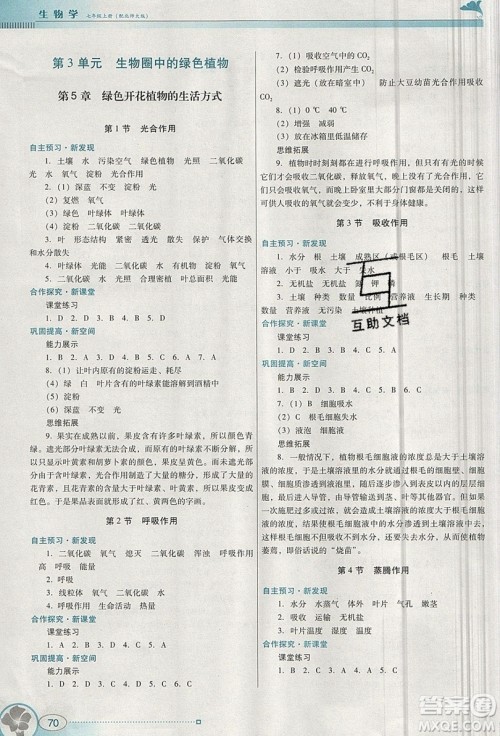 生物学 七年级上册（配北师大版）
第3单元 生物圈中的绿色植物
第5章 绿色开花植物的生活方式
第1节 光合作用
自主预习·新发现
1. 土壤 水 污染空气 绿色植物 光照 二氧化碳
水 淀粉 光合作用
2.（1）深蓝 不变蓝 淀粉 光
（2）复燃 氧气
（3）光 绿色 叶绿体 叶绿体
3. 叶 形态结构 紧密 透光 散失 保护（透光和
水分散失）
4. 叶绿体 光能 二氧化碳 有机物 化学能
5. 叶绿体 水 光能 有机物 氧气
合作探究·新课堂
课堂练习
1. B 2. A 3. A 4. C 5. A
巩固提高·新空间
能力展示
1. B 2. B 3. A 4. C 5. D 6. C 7. B
8.（1）让叶内原有的淀粉运走（运走耗尽）
（2）酒精 绿 叶片含有的叶绿素能溶解到酒精中
（3）深蓝 不变 光
思维拓展
9. 果实在成熟以前，由于含有许多叶绿素，所以颜色青
绿。遮光后无法形成叶绿素，果实颜色变白。成熟后，叶绿素分
解，同时呈现叶黄素和胡萝卜素的颜色，有些还产生了大量的
花青素，且数量大大多于叶绿素。由于叶黄素、胡萝卜素、花
青素等的颜色多是红、黄、橙色的，所以许多植物的果实成熟
后，果皮会呈现红、黄、橙两色的颜色。
第2节 呼吸作用
自主预习·新发现
1. 二氧化碳 氧气 熄灭 二氧化碳 浑浊 呼吸作用
有机物 能量
2. 呼吸
3. 吸收 二氧化碳 水 能量
4. 呼吸作用 生命活动 热量
合作探究·新课堂
课堂练习
1. B 2. D 3. D 4. C 5. C
巩固提高·新空间
能力展示
1. D 2. B 3. A 4. D 5. C 6. B
7.（1）吸收空气中的CO₂
（2）检验呼吸作用产生的CO₂
（3）遮光（放在暗室中） 防止大豆幼苗光合作用吸收
CO₂
8.（1）二氧化碳 氧气
（2）增强 减弱
（3）放在冰箱里低温储存
思维拓展
9. 植物时时刻刻都在进行呼吸作用，吸收氧气，释放二
氧化碳。只有在有光的条件下，植物才进行光合作用，吸收二
氧化碳，释放氧气。因此，晚上在卧室里大量摆放植物，这样
可供人吸收的氧气就会减少，不利于身体健康。
第3节 吸收作用
自主预习·新发现
1. 水分 根 土壤 成熟区（或根毛区） 根毛 土壤
溶液 小于 吸水 大于 失水
2. 无机盐 无机盐 氮 钾 磷
3. 土壤 种类 数量 比例 营养液 生长期 种类
数量 营养液 无污染 土壤种植
合作探究·新课堂
课堂练习
1. C 2. A 3. D 4. D
巩固提高·新空间
能力展示
1. B 2. A 3. D 4. C 5. C 6. B
7.（1）B 细胞吸水
（2）A 根毛细胞失水
（3）液泡 细胞壁
思维拓展
8. 一般情况下，植物根毛细胞液的浓度总是大于土壤溶
液的浓度，于是土壤溶液里的水分就通过根毛的细胞壁、细
胞膜、细胞质渗透到液泡里。当一次施肥过多或过浓时，土壤
溶液的浓度大于根毛细胞液的浓度，根毛细胞液里的水分就
会通过细胞质、细胞膜、细胞壁渗透到土壤溶液里，植物就会
萎蔫，出现所谓的“烧苗”。
第4节 蒸腾作用
自主预习·新发现
1. 水分 水蒸气 体外 叶片 气孔 嫩茎
2. 吸收 运输 无机盐
3. 叶片温度 湿度
合作探究·新课堂
课堂练习
1. B 2. D 3. D 4. C
巩固提高·新空间
能力展示
1. C 2. D 3. B 4. C 5. A
互助文档
70
作业帮
MXQE.COM